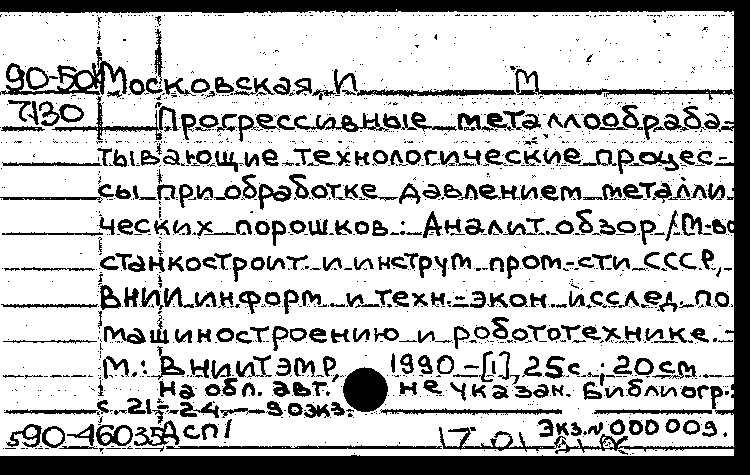 90-50 Московская, И М
7130 Прогрессивные металлообраба-
тывающие технологические процес-
сы при обработке давлением металли-
ческих порошков : Аналит. обзор / М-во
станкостроит. и инструм. пром-сти СССР,
ВНИИ информ. и техн.-экон. исслед. по
машиностроению и робототехнике. -
М.: ВНИИТЭМР, 1990 -[1], 25с. ; 20см
на обл. авт. не указан. Библиогр.:
с. 21-24. - 90экз.
590-46035 Асп1 Экз.N 000009.
17.01.